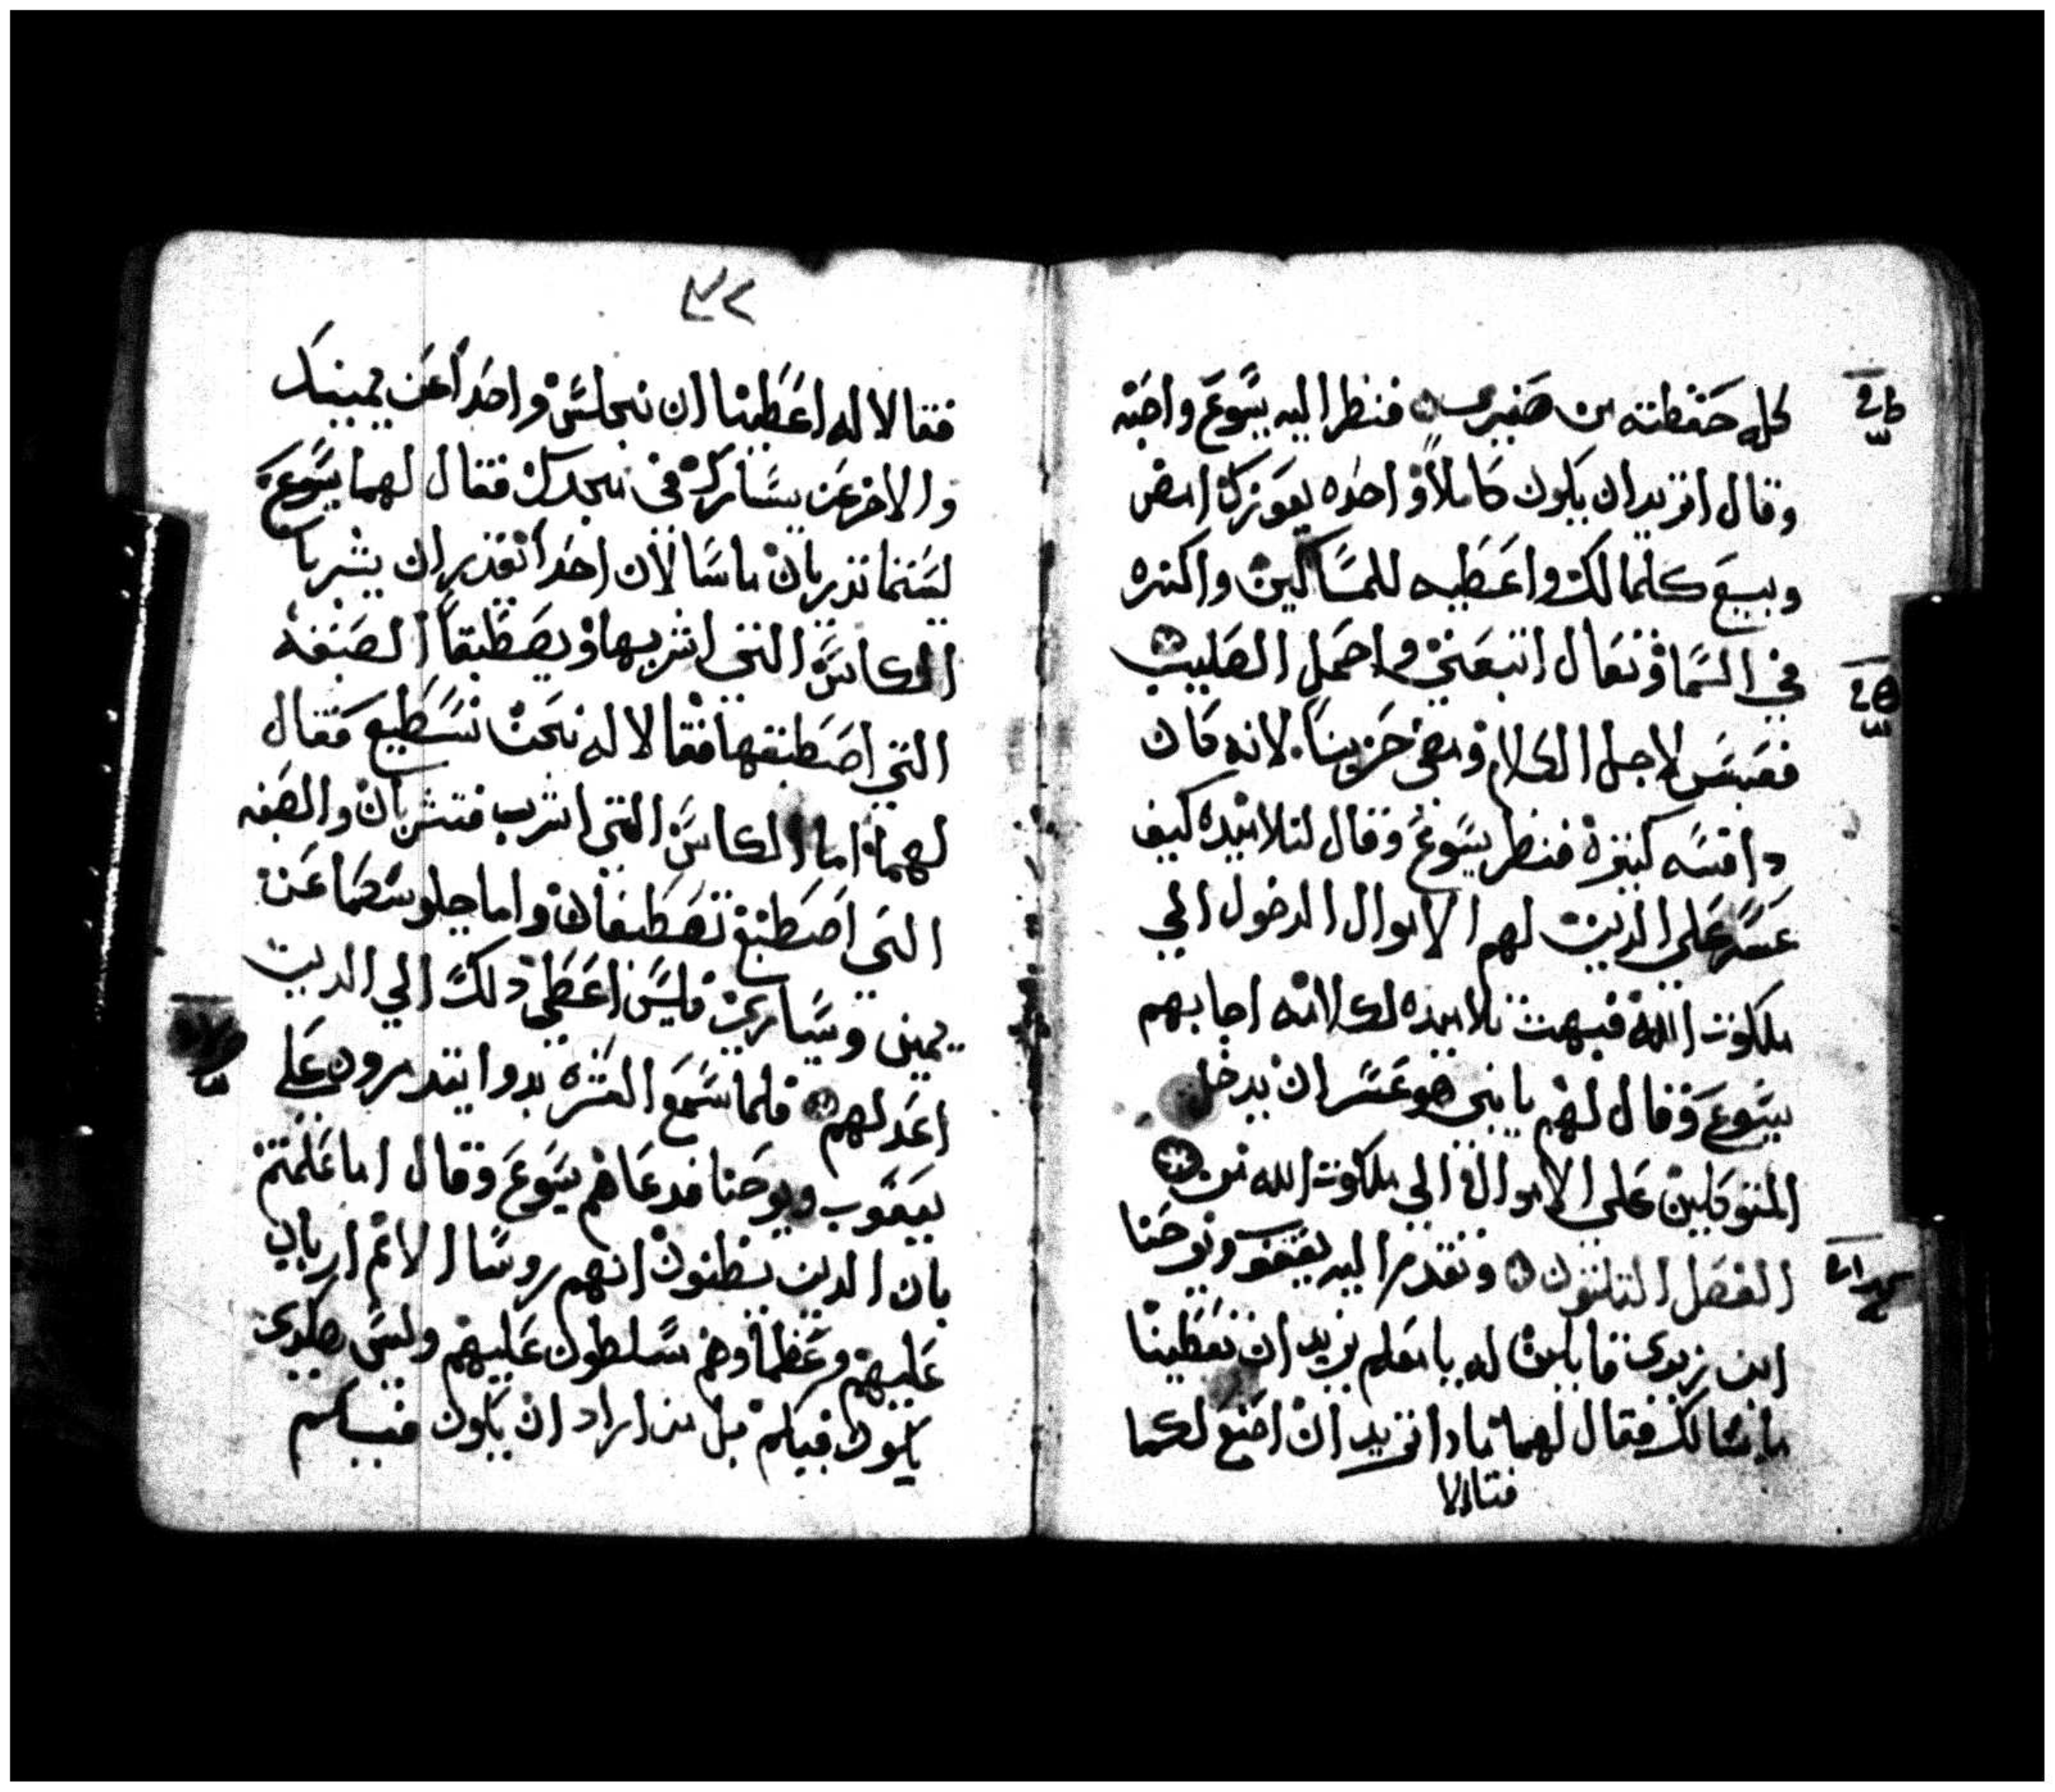 كله حفظته من صغرى فنظر اليه يسوع واحبه
وقال اتريد ان يكون كاملاً واحده يعوزك امض
وبيع كلما لك واعطيه للمساكين واكنزه
في السما وتعال اتبعني واحمل الصليب
فعبس لاجل الكلام ومضى حزينا لانه كان
دا قنسه كبيرة فنظر يسوع وقال لتلاميده كيف
عسر على الدين لهم الاموال الدخول الي
ملكوت الله فبهت تلاميده لكلامه اجابهم
يسوع وقال لهم يا بني هو عسر ان يدخل
المتوكلين علي الاموال الي ملكوت الله
الفصل التلتون وتقدم اليه يعقوب ويوحنا
ابن زبدى قايلين له يا معلم نريد ان تعطينا
ما سالك فقال لهما مادا تريد ان اصنع لكما
فقالا
فقالا له اعطينا ان نجلس واحداً عن يمينك
والاخر عن يسارك في مجدك فقال لهما يسوع
لستما تدريان ما سالان احدا تقدر ان يشربا
الكاس التي اشربها ويصطبغا الصبغه
التي اصطبغها فقالا له نحن نسطيع فقال
لهما اما الكاس التي اشرب فتشربان والصبغه
التي اصطبغ تصطبغان واما جلوسكما عن
يميني وسياري فليس اعطي دلك الي الدين
اعد لهم فلما سمع العشرة بدوا يتدمرون علي
يعقوب ويوحنا فدعاهم يسوع وقال اما علمتم
بان الدين يظنون انهم روسا الامم ارباب
عليهم وعظماوهم مسلطون عليهم وليس هكدى
يكون فيكم بل من اراد ان يكون فيكم